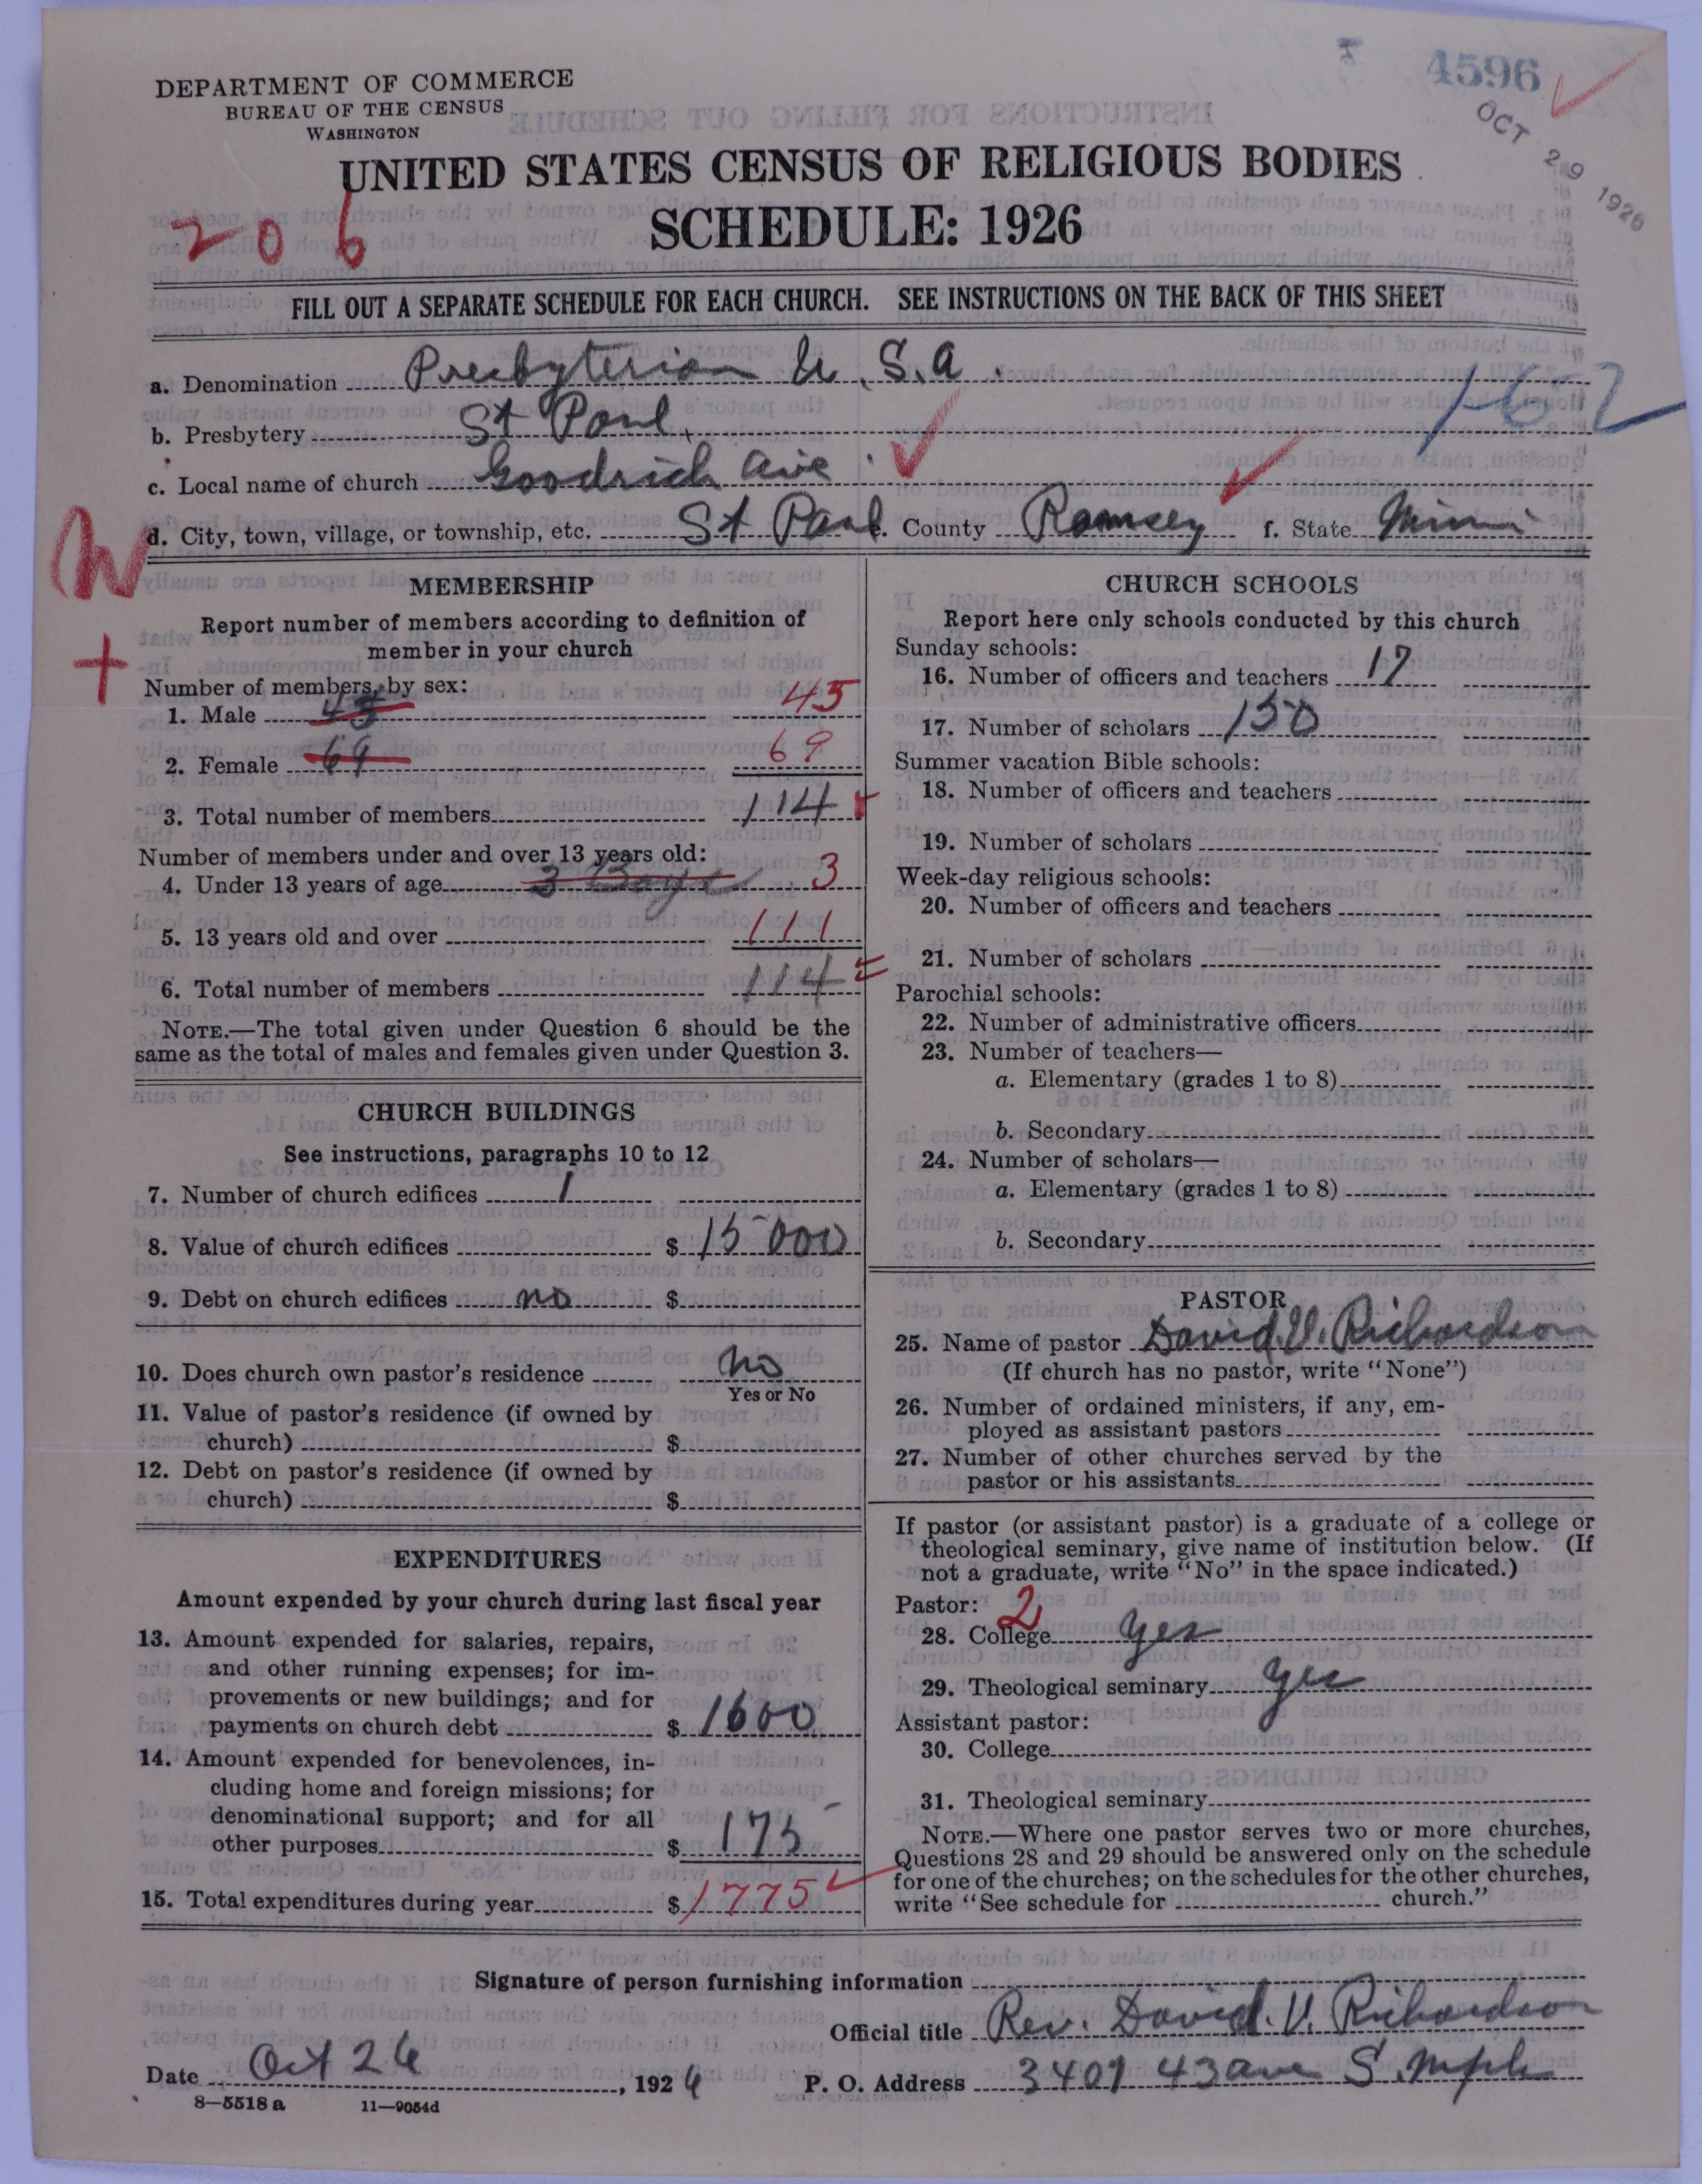 4596
OCT 29 1926
DEPARTMENT OF COMMERCE
BUREAU OF THE CENSUS
WASHINGTON
UNITED STATES CENSUS OF RELIGIOUS BODIES
SCHEDULE: 1926
206
FILL OUT A SEPARATE SCHEDULE FOR EACH CHURCH. SEE INSTRUCTIONS ON THE BACK OF THIS SHEET
a. Denomination Presbyterian U.S.A.
1-62
b. Presbytery St Paul
c. Local name of church Goodrich Ave
d. City, town, village, or township, etc. St Paul e. County Ramsey f. State Minn
MEMBERSHIP
Report number of members according to definition of
member in your church
Number of members, by sex:
1. Male 45 45
2. Female 69 69
3. Total number of members 114
Number of members under and over 13 years old:
4. Under 13 years of age 3 Boys 3
5. 13 years old and over 111
6. Total number of members 114
NOTE.—The total given under Question 6 should be the
same as the total of males and females given under Question 3.
CHURCH BUILDINGS
See instructions, paragraphs 10 to 12
7. Number of church edifices 1
8. Value of church edifices $ 15000
9. Debt on church edifices no $
10. Does church own pastor's residence No
Yes or No
11. Value of pastor's residence (if owned by
church) $
12. Debt on pastor's residence (if owned by
church) $
EXPENDITURES
Amount expended by your church during last fiscal year
13. Amount expended for salaries, repairs,
and other running expenses; for im-
provements or new buildings; and for
payments on church debt $ 1600
14. Amount expended for benevolences, in-
cluding home and foreign missions; for
denominational support; and for all
other purposes $ 175
15. Total expenditures during year $ 1775
CHURCH SCHOOLS
Report here only schools conducted by this church
Sunday schools:
16. Number of officers and teachers 17
17. Number of scholars 150
Summer vacation Bible schools:
18. Number of officers and teachers
19. Number of scholars
Week-day religious schools:
20. Number of officers and teachers
21. Number of scholars
Parochial schools:
22. Number of administrative officers
23. Number of teachers—
a. Elementary (grades 1 to 8)
b. Secondary
24. Number of scholars—
a. Elementary (grades 1 to 8)
b. Secondary
PASTOR
25. Name of pastor David V. Richardson
(If church has no pastor, write "None")
26. Number of ordained ministers, if any, em-
ployed as assistant pastors
27. Number of other churches served by the
pastor or his assistants
If pastor (or assistant pastor) is a graduate of a college or
theological seminary, give name of institution below. (If
not a graduate, write "No" in the space indicated.)
Pastor: 2
28. College yes
29. Theological seminary yes
Assistant pastor:
30. College
31. Theological seminary
NOTE.—Where one pastor serves two or more churches,
Questions 28 and 29 should be answered only on the schedule
for one of the churches; on the schedules for the other churches,
write "See schedule for church."
Signature of person furnishing information
Official title Rev. David. V. Richardson
Date Oct 26, 1926 P. O. Address 3407 43 ave S. Mpls
8—5518 a 11—9054d